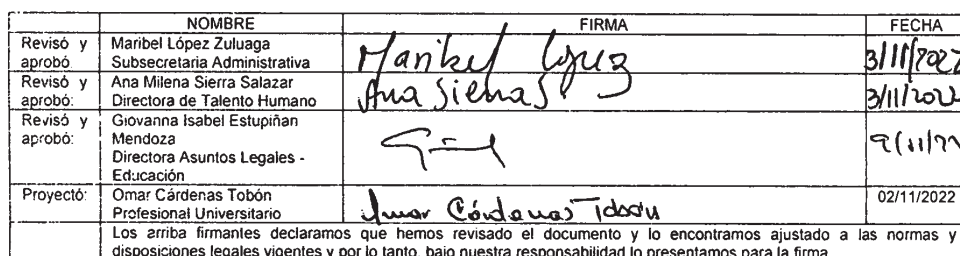 NOMBRE FIRMA FECHA
Revisó y aprobó. Maribel López Zuluaga Subsecretaria Administrativa Maribel López 3/11/2022
Revisó y aprobó: Ana Milena Sierra Salazar Directora de Talento Humano Ana Sierra S. 3/11/2022
Revisó y aprobó: Giovanna Isabel Estupiñan Mendoza Directora Asuntos Legales - Educación 9/11/22
Proyectó: Omar Cárdenas Tobón Profesional Universitario Omar Cárdenas Tobón 02/11/2022
Los arriba firmantes declaramos que hemos revisado el documento y lo encontramos ajustado a las normas y
disposiciones legales vigentes y por lo tanto, bajo nuestra responsabilidad lo presentamos para la firma